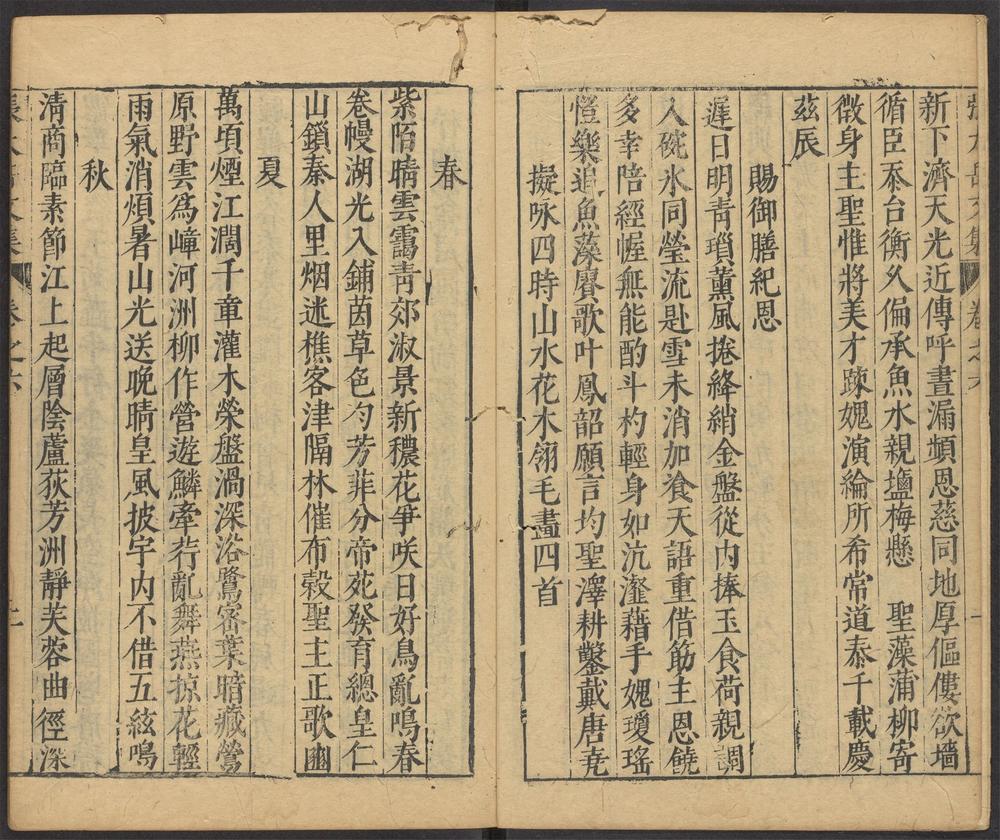 新下濟天光近傳呼晝漏頻恩慈同地厚傴僂欲墻
循臣忝台衡久偏承魚水親鹽梅懸　聖藻蒲柳寄
微身主聖惟將美才踈媿演綸所希常道泰千載慶
茲辰
賜御膳紀恩
遲日明靑瑣薰風捲絳綃金盤從內捧玉食荷親調
入碗氷同瑩流匙雪未消加飡天語重借筯主恩饒
多幸陪經幄無能酌斗杓輕身如沆瀣藉手媿瓊瑤
愷樂追魚藻賡歌叶鳳韶願言均聖澤耕鑿戴唐堯
擬咏四時山水花木翎毛畫四首
春
紫陌晴雲靄靑郊淑景新穠花爭咲日好鳥亂鳴春
卷幔湖光入鋪茵草色勻芳菲分帝苑發育總皇仁
山鎖秦人里烟迷樵客津隔林催布穀聖主正歌豳
夏
萬頃煙江濶千童灌木榮盤渦深浴鷺密葉暗藏鶯
原野雲爲嶂河洲柳作營遊鱗牽荇亂舞燕掠花輕
雨氣消煩暑山光送晚晴皇風披宇內不借五絃鳴
秋
淸商臨素節江上起層陰蘆荻芳洲靜芙蓉曲徑深